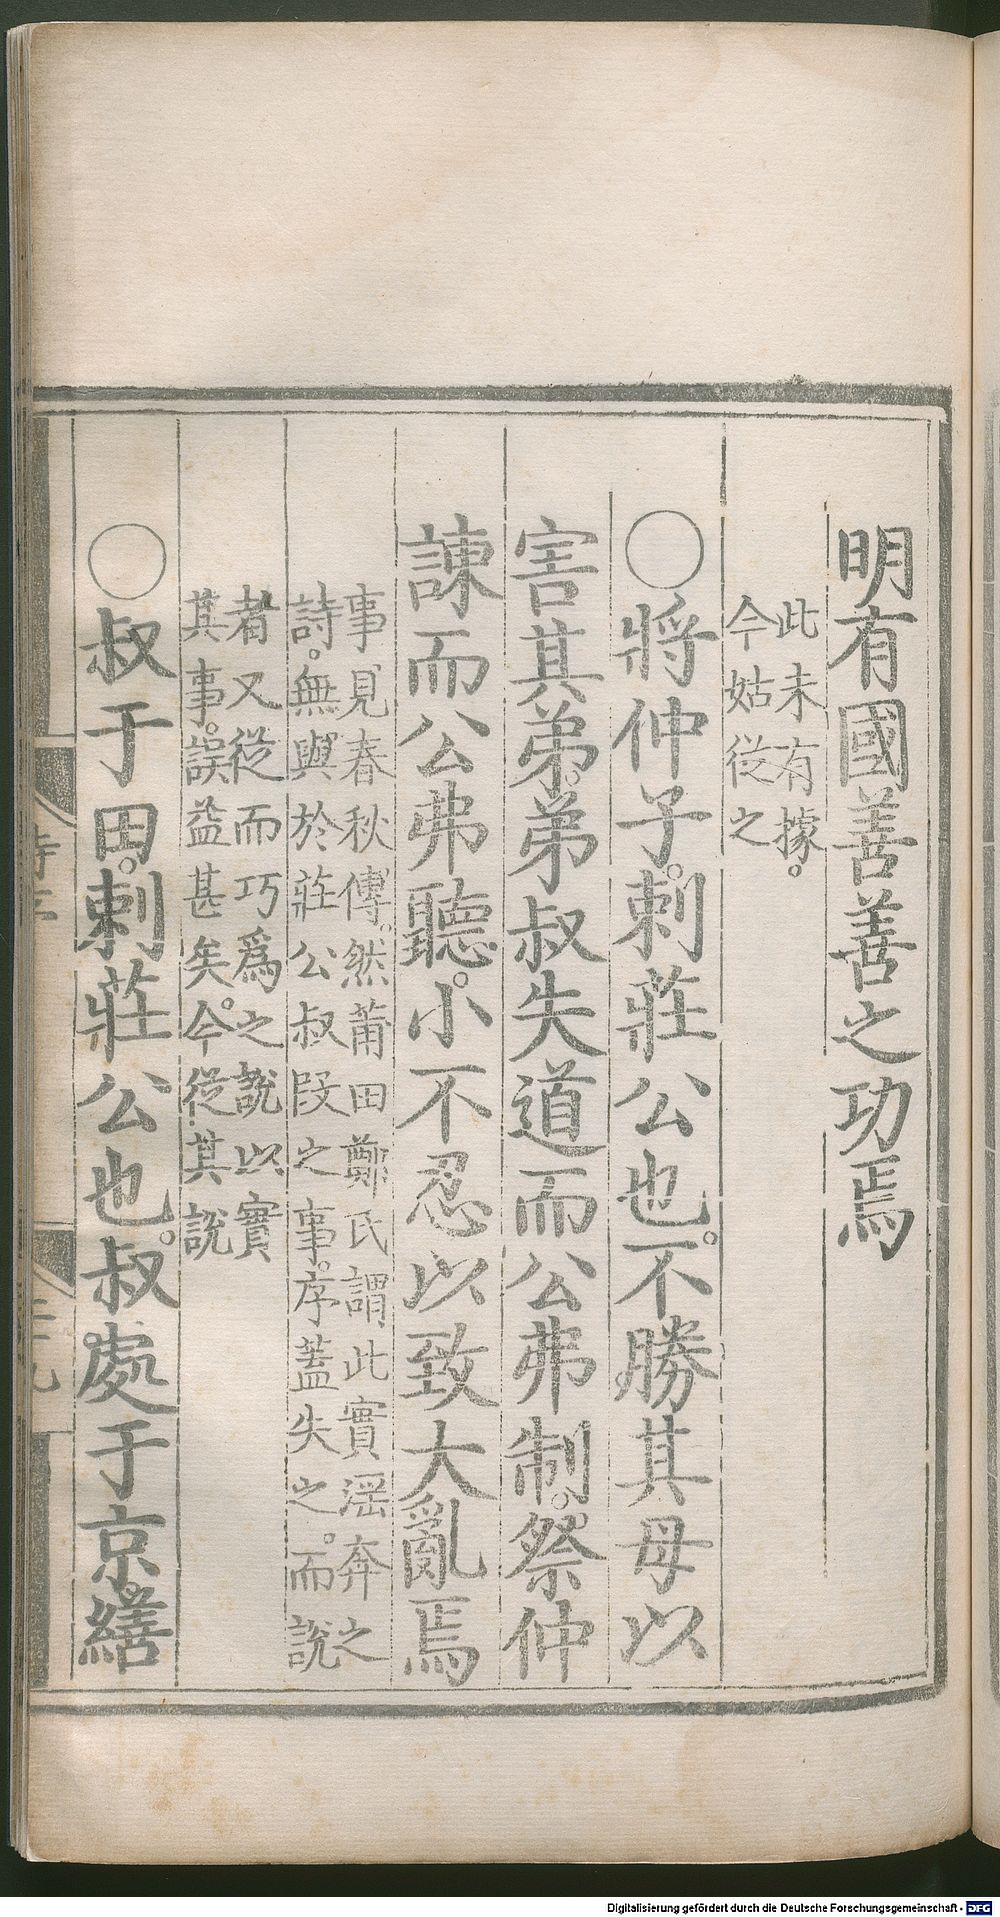 明有國善善之功焉
此未有據。
今姑從之
○將仲子。刺莊公也。不勝其母以
害其弟。弟叔失道而公弗制。祭仲
諫而公弗聽。小不忍以致大亂焉
事見春秋傳。然莆田鄭氏謂此實淫奔之
詩。無與於莊公叔段之事。序蓋失之。而說
者又從而巧爲之說以實
其事。誤益甚矣。今從其說
○叔于田。刺莊公也。叔處于京。繕
Digitalisierung gefördert durch die Deutsche Forschungsgemeinschaft - DFG